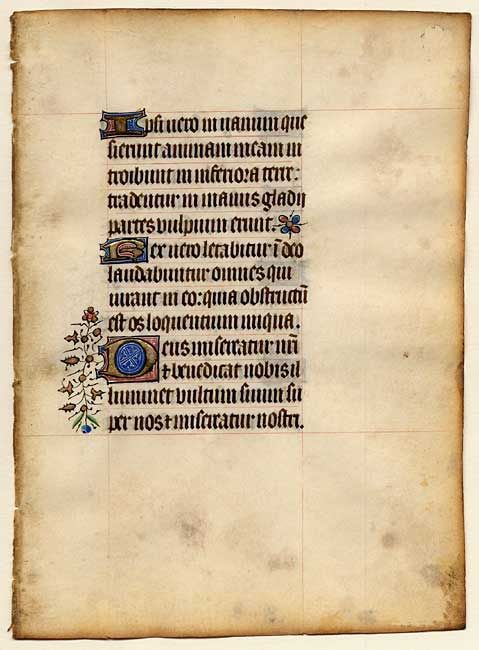 Ipsi vero in vanum que
sierunt animam meam in
troibunt in inferiora terre:
tradentur in manus gladii
partes vulpium erunt.
Rex vero letabitur ī deo
laudabuntur omnes qui
iurant in eo: quia obstructū
est os loquentium iniqua.
Deus misereatur nr̄i
⁊ benedicat nobis il
luminet vultum suum su
per nos ⁊ misereatur nostri.